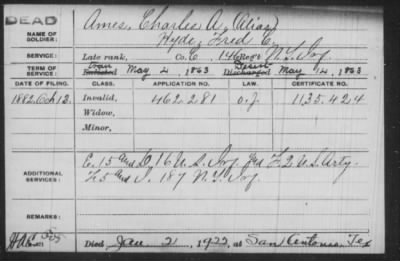 DEAD
NAME OF SOLDIER:
Ames, Charles A. (Alias)
Hyde, Fred C.
SERVICE:
Late rank, Co. C, 146 Reg't N.Y. Inf
TERM OF SERVICE:
Enrolled May 2, 1863 Discharged May 12, 1863
DATE OF FILING. CLASS. APPLICATION NO. LAW. CERTIFICATE NO.
1882 Oct 13. Invalid, 462.281 O.L. 1135.424
Widow,
Minor,
ADDITIONAL SERVICES:
C. 15 and D. 16 U.S. Inf. and F. 2 U.S. Arty.
F. 5 and I. 187 N.Y. Inf.
REMARKS:
Died Jan. 21, 1922, at San Antonio, Tex